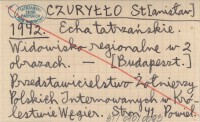 CZURYŁŁO St[anisław]
1942. Echa tatrzańskie.
Widowisko regionalne w 2
obrazach. — [Budapeszt.]
Przedstawicielstwo Żołnierzy
Polskich Internowanych w Kro-
lestwie Węgier. Stron 14. Powiel.